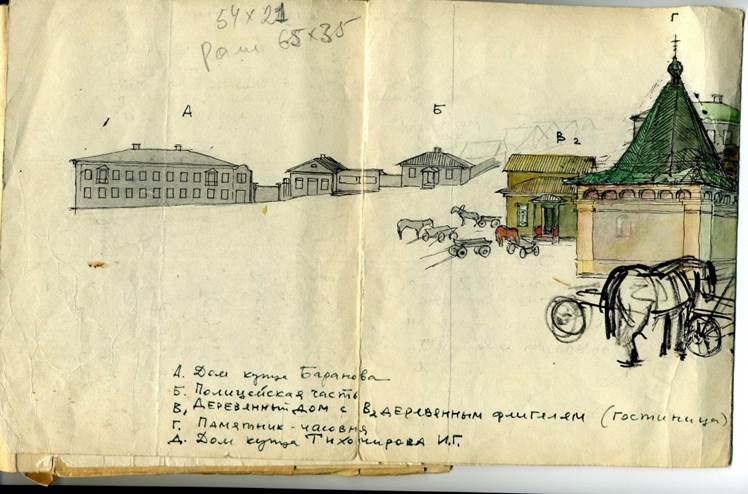 54×21
рам 65×35
Г
А
Б
В₂
А. Дом купца Баранова
Б. Полицейская часть
В₁ Деревянный дом с В₂ деревянным флигелям (гостиница)
Г. Памятник-часовня
Д. Дом купца Тихомирова И.Г.